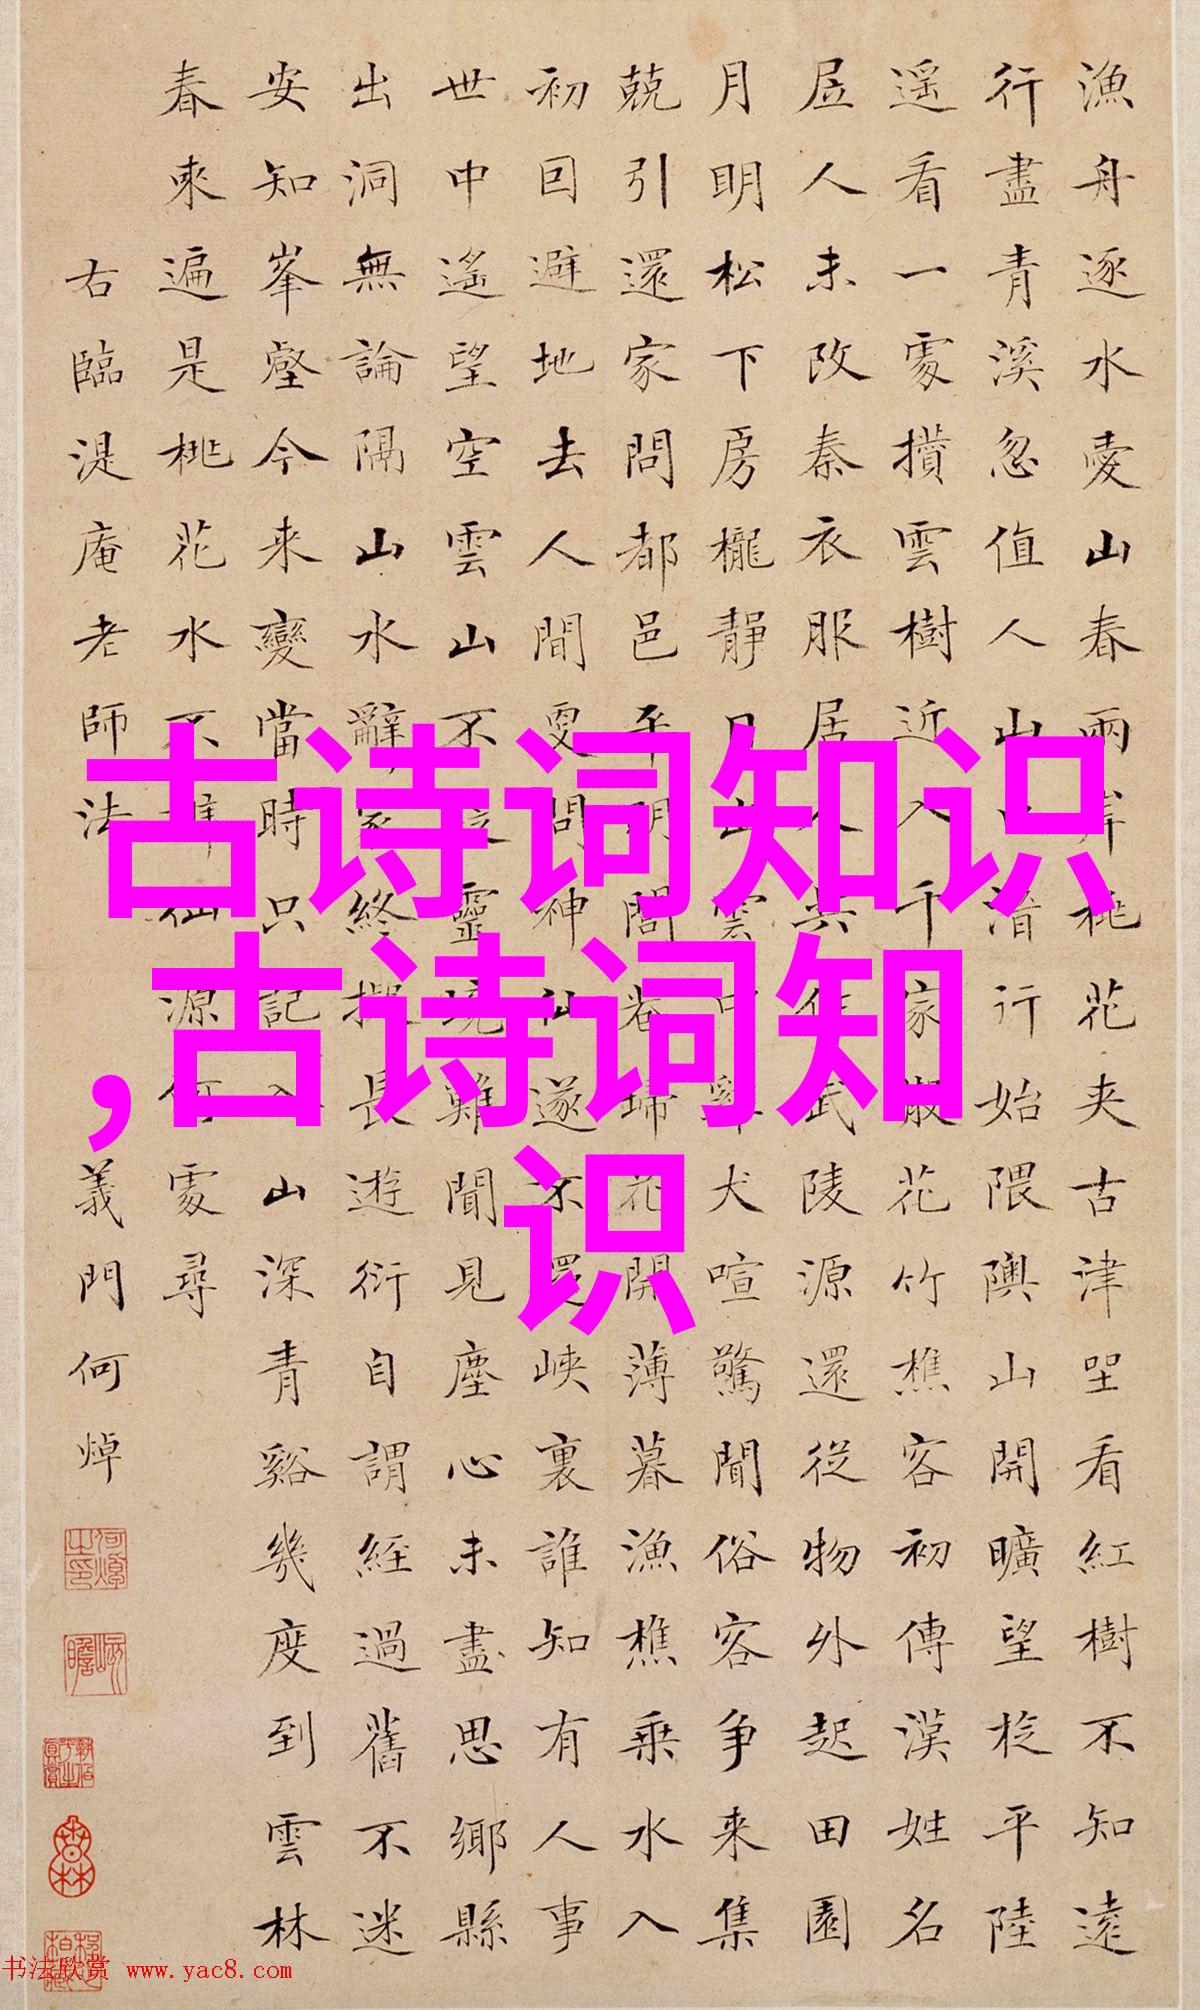 古诗词知识
,古诗词知
识
漁舟逐水愛山春兩岸桃花夾古津坐看紅樹不知遠
行盡青溪忽值人山口潛行始隈隩山開曠望旋平陸
遥看一處攢雲樹近入千家散花竹樵客初傳漢姓名
居人未改秦衣服居人共住武陵源還從物外起田園
月明松下房櫳靜日出雲中雞犬喧驚聞俗客争来集
兢引還家問都邑平明閭巷埽花開薄暮漁樵乘水入
初回避地去人間更問神仙遂不還峽裏誰知有人事
世中遙望空雲山不疑靈境難聞見塵心未盡思鄉縣
出洞無論隔山水辭家終擬長遊衍自謂經過舊不迷
安知峯壑今来變當時只記入山深青谿幾度到雲林
春來遍是桃花水不辨仙源何處尋
右臨湜庵老師法 義門何焯
书法欣赏 www.yac8.com